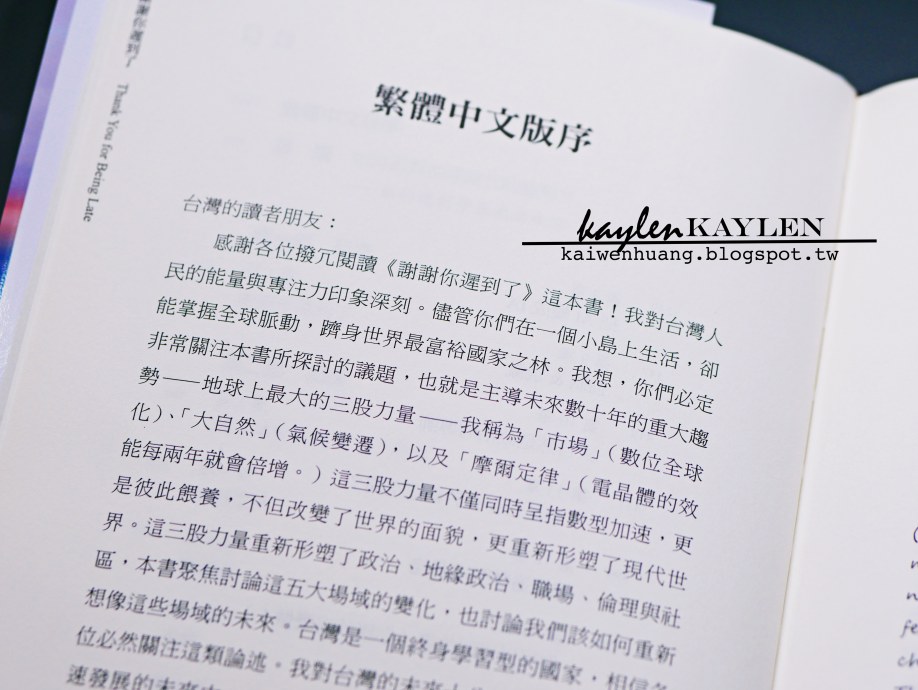 謝你遲到了 Thank You for Being Late
繁體中文版序
kaylen KAYLEN
kaiwenhuang.blogspot.tw
台灣的讀者朋友：
感謝各位撥冗閱讀《謝謝你遲到了》這本書！我對台灣人
民的能量與專注力印象深刻。儘管你們在一個小島上生活，卻
能掌握全球脈動，躋身世界最富裕國家之林。我想，你們必定
非常關注本書所探討的議題，也就是主導未來數十年的重大趨
勢——地球上最大的三股力量——我稱為「市場」（數位全球
化）、「大自然」（氣候變遷），以及「摩爾定律」（電晶體的效
能每兩年就會倍增。）這三股力量不僅同時呈指數型加速，更
是彼此餵養，不但改變了世界的面貌，更重新形塑了現代世
界。這三股力量重新形塑了政治、地緣政治、職場、倫理與社
區，本書聚焦討論這五大場域的變化，也討論我們該如何重新
想像這些場域的未來。台灣是一個終身學習型的國家，相信各
位必然關注這類論述。我對台灣的未來
速發展的未來